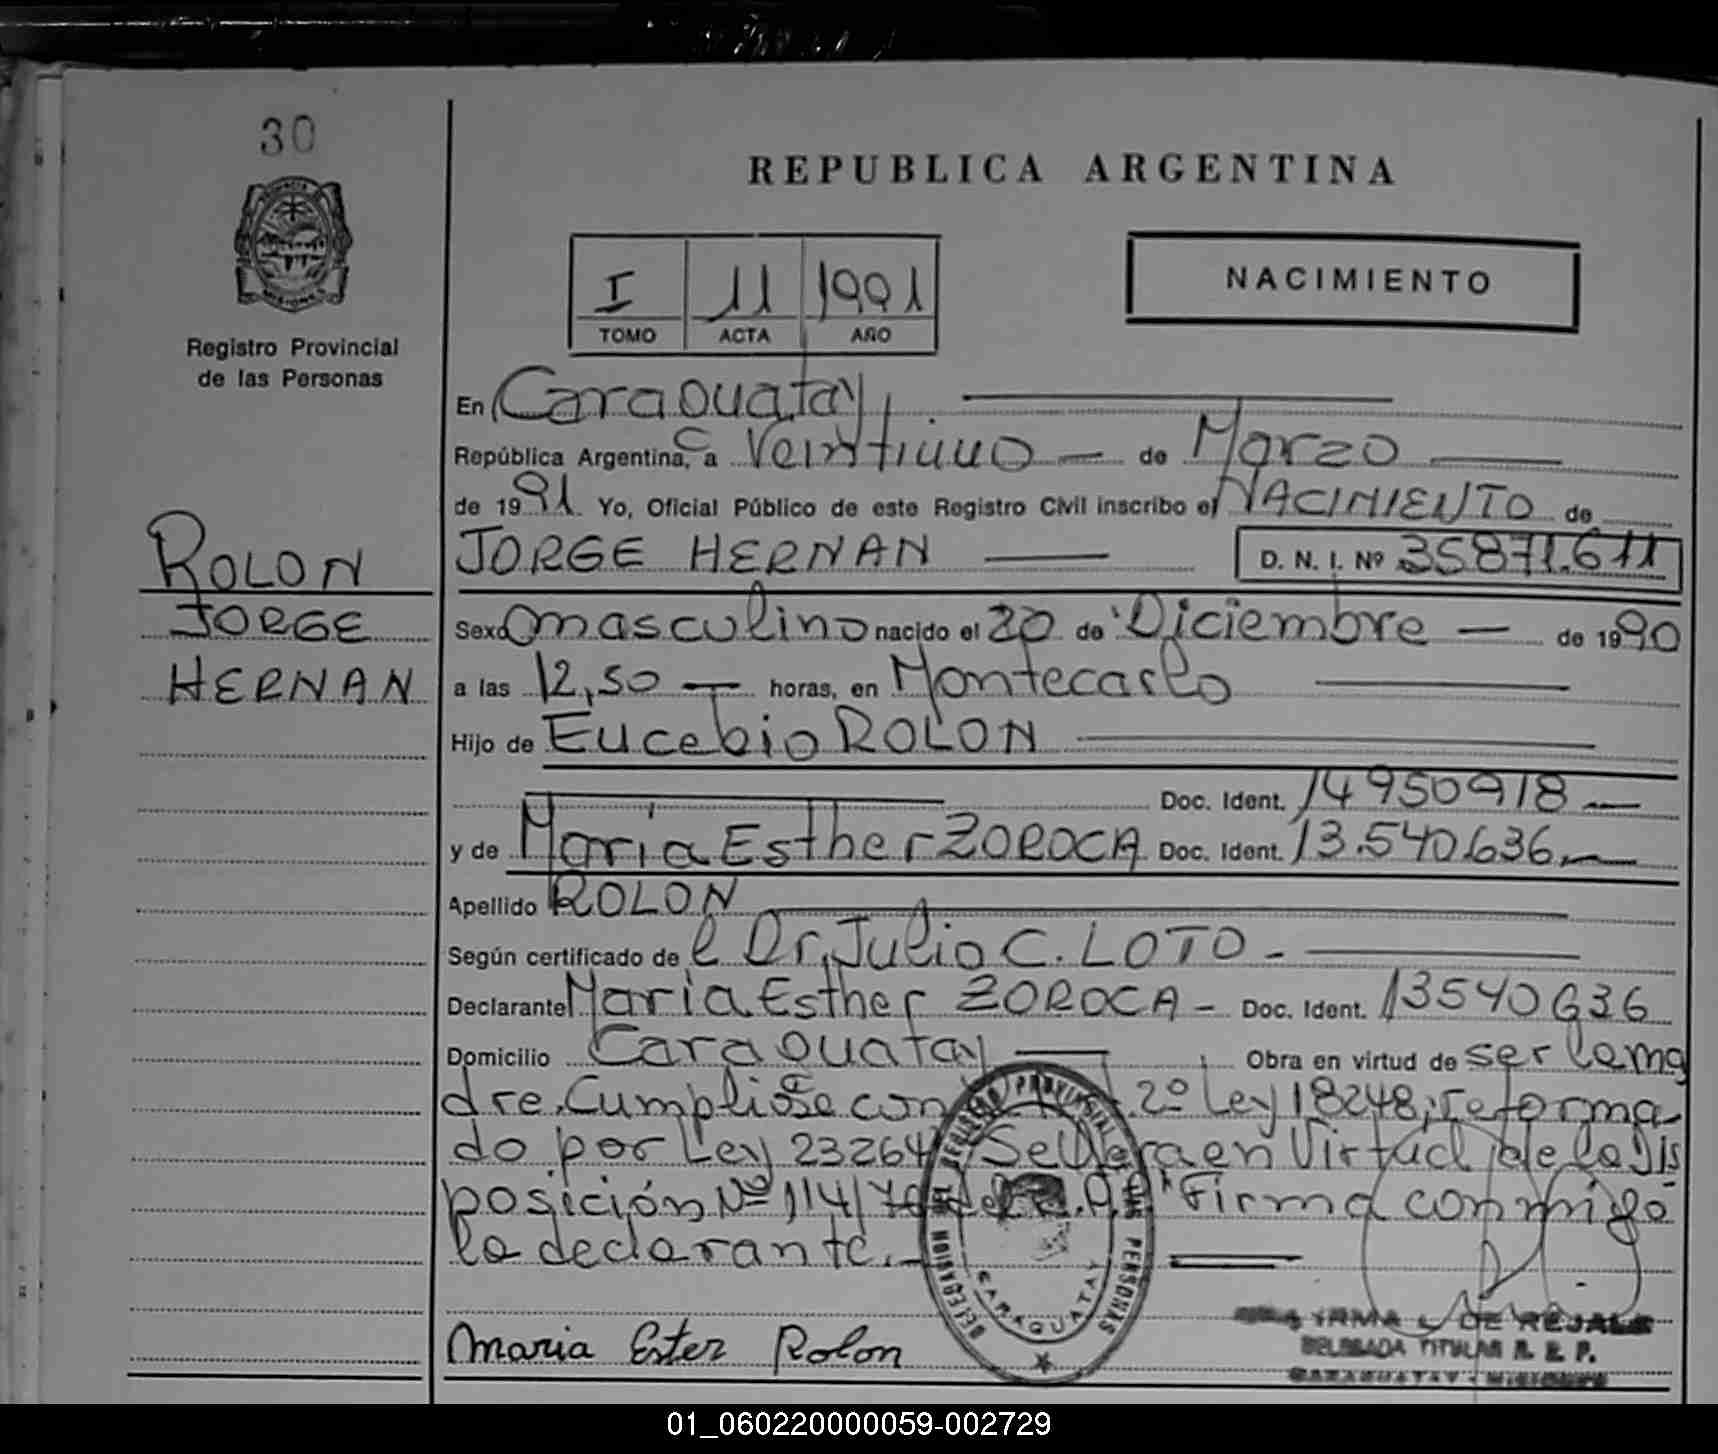 30
REPUBLICA ARGENTINA
I 11 1991
TOMO ACTA AÑO
NACIMIENTO
Registro Provincial
de las Personas
En Caraguatay
República Argentina, a Veintiuno — de Marzo
de 1991. Yo, Oficial Público de este Registro Civil inscribo el NACIMIENTO de
ROLON
JORGE
HERNAN
JORGE HERNAN — D. N. I. Nº 35871.611
Sexo masculino nacido el 20 de Diciembre — de 1990
a las 12,50 — horas, en Montecarlo
Hijo de Eucebio ROLON
Doc. Ident. 14950918 —
y de Maria Esther ZOROCA Doc. Ident. 13.540.636.—
Apellido ROLON
Según certificado de l Dr. Julio C. LOTO -
Declarante Maria Esther ZOROCA - Doc. Ident. 13540636
Domicilio Caraguatay — Obra en virtud de ser la ma
dre. Cumpliose con 2º Ley 18248, reforma
do por Ley 23264, Se labra en Virtud de la Dis
posición Nº 114/ Firma conmigo
la declarante.-
Maria Ester Rolon
DELEGACION DEL REGISTRO PROVINCIAL DE LAS PERSONAS
CARAGUATAY
IRMA L. DE REJALA
DELEGADA TITULAR R. E. P.
CARAGUATAY - MISIONES
01_060220000059-002729